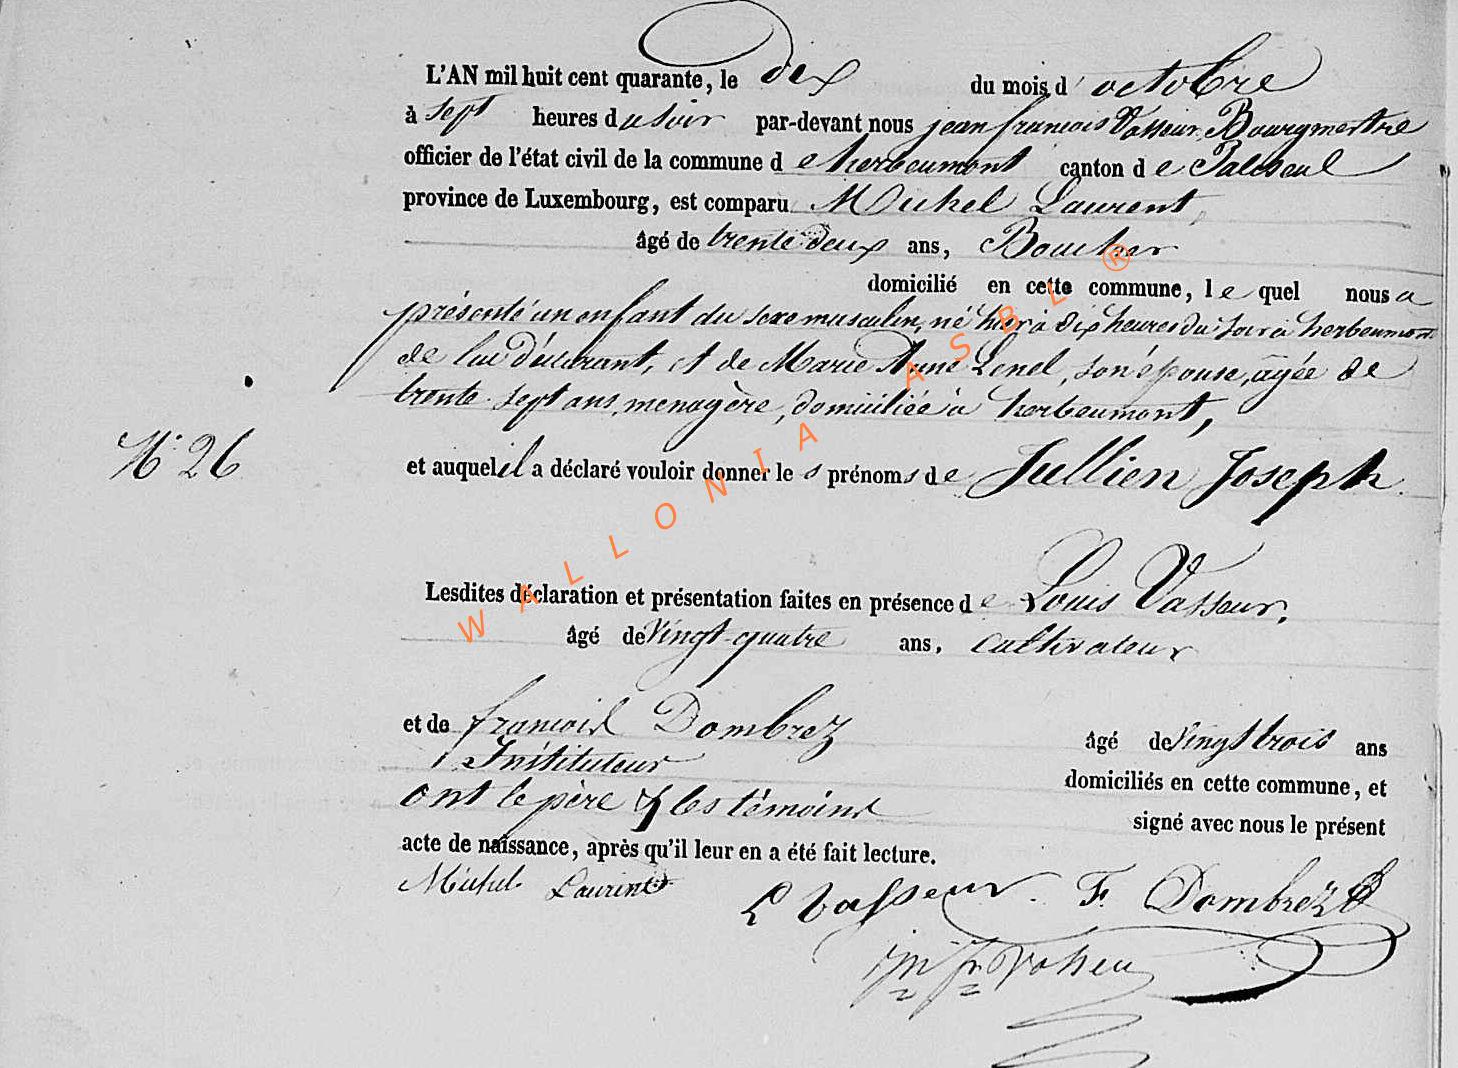 L'AN mil huit cent quarante, le dix du mois d'octobre
à sept heures du soir par-devant nous jean françois Vasseur, Bourgmestre
officier de l'état civil de la commune de herbeumont canton de Paliseul
province de Luxembourg, est comparu Michel Laurent,
âgé de trente deux ans, Boucher
domicilié en cette commune, le quel nous a
présenté un enfant du sexe musculin, né hier à dix heures du soir à herbeumont
de lui déclarant, et de Marie Anne Lenel, son épouse, agée de
trente sept ans, menagère, domiciliée à herbeumont,
N° 26
et auquel il a déclaré vouloir donner les prénoms de Jullien Joseph.
Lesdites déclaration et présentation faites en présence de Louis Vasseur,
âgé de Vingt-quatre ans, cultivateur
et de françois Dombrez âgé de Vingt trois ans
Instituteur domiciliés en cette commune, et
ont le père & les témoins signé avec nous le présent
acte de naissance, après qu'il leur en a été fait lecture.
Michel Laurent L Vasseur. F. Dombrez
jn fs Vasseur
WALLONIA ASBL ®